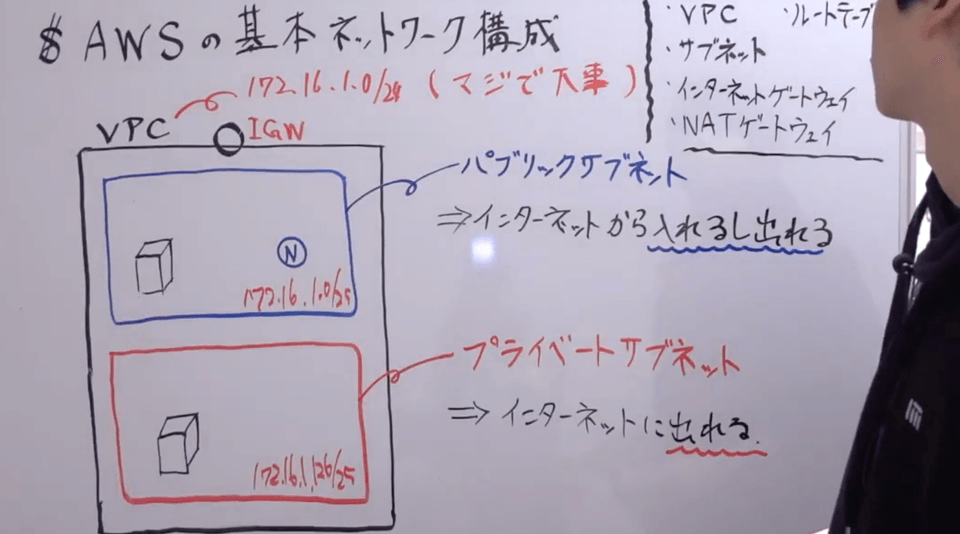 $ AWSの基本ネットワーク構成
・VPC ・ルートテーブ
・サブネット
・インターネットゲートウェイ
・NATゲートウェイ
172.16.1.0/24 (マジで大事)
VPC
IGW
パブリックサブネット
⇒インターネットから入れるし出れる
N
172.16.1.0/25
プライベートサブネット
⇒インターネットに出れる.
172.16.1.126/25